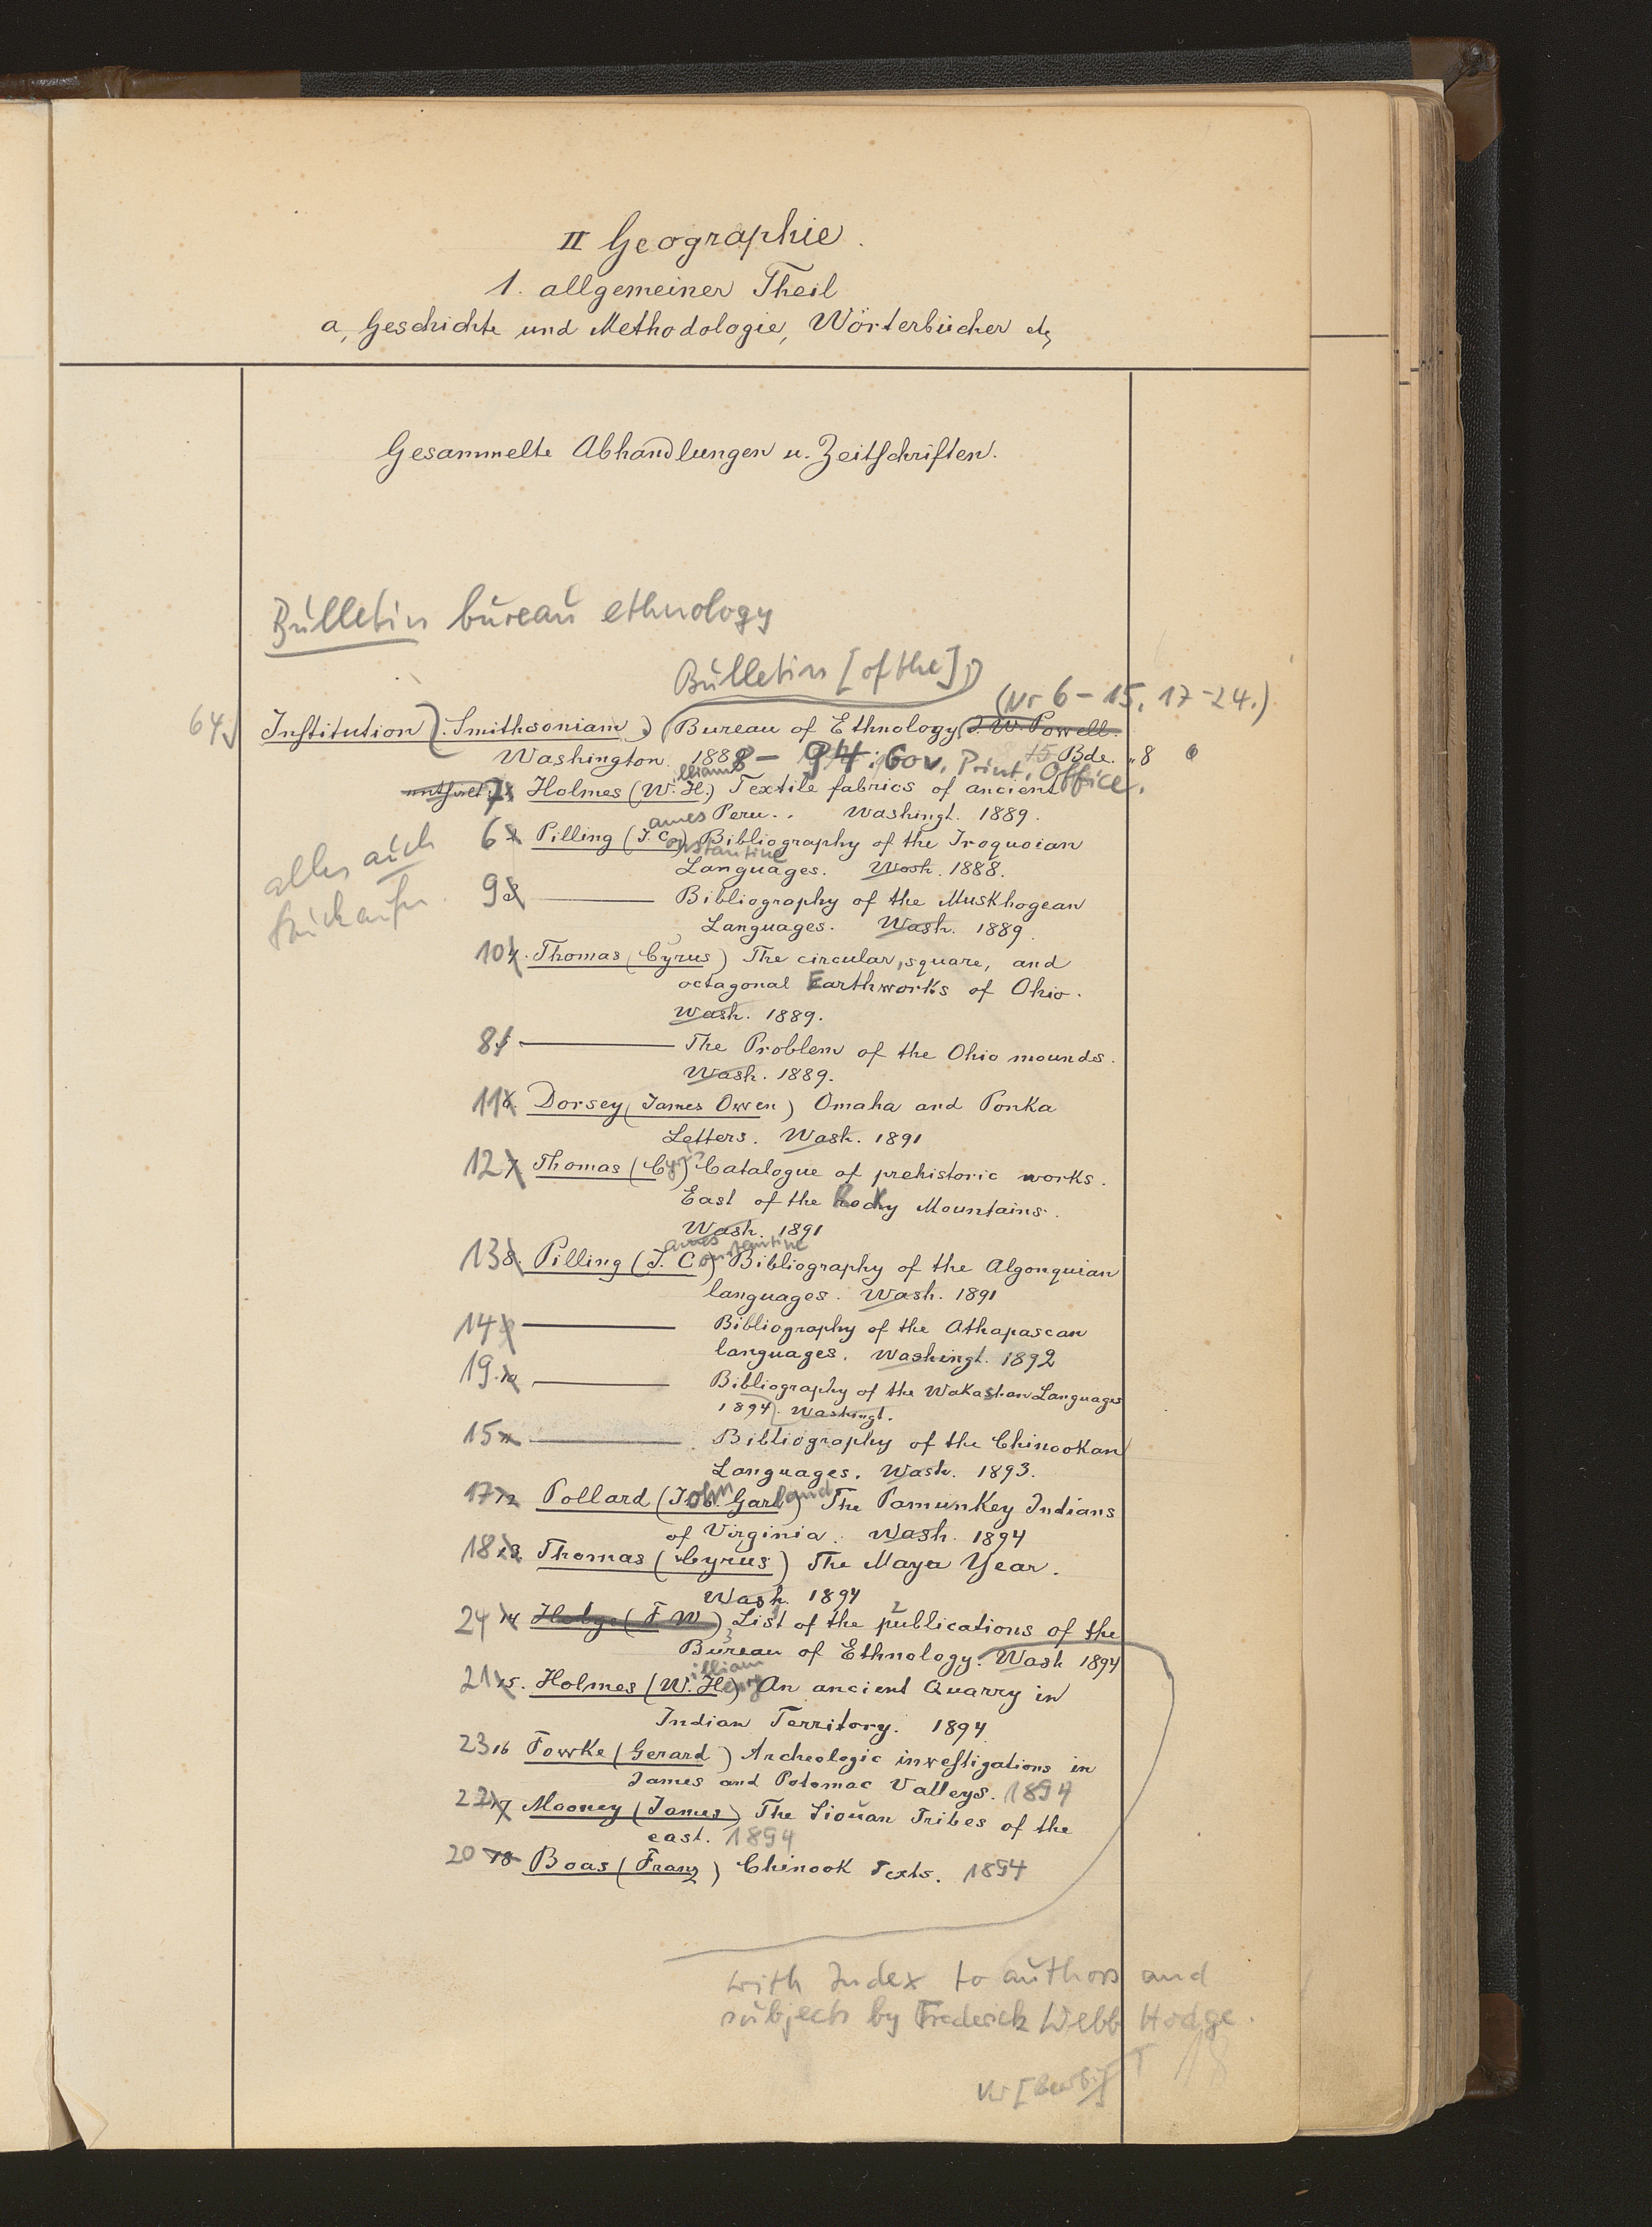 II Geographie.
1. allgemeiner Theil
a, Geschichte und Methodologie, Wörterbücher etc
Gesammelte Abhandlungen u. Zeitschriften.
Bulletin bureau ethnology
Bulletin [of the]
(Nr 6-15, 17-24.)
64 Institution (Smithsonian) Bureau of Ethnology J. W. Powell.
Washington. 1888-94: Gov. Print. Office. 15 Bde. 8
7 Holmes (William H.) Textile fabrics of ancient
Peru. Washingt. 1889.
6 Pilling (James Constantine) Bibliography of the Iroquoian
Languages. Wash. 1888.
alles auch
9 ——— Bibliography of the Muskhogean
Languages. Wash. 1889.
10 4. Thomas (Cyrus) The circular, square, and
octagonal Earthworks of Ohio.
Wash. 1889.
8 5 ——— The Problem of the Ohio mounds.
Wash. 1889.
11 6. Dorsey (James Owen) Omaha and Ponka
Letters. Wash. 1891
12 7 Thomas (Cyrus) Catalogue of prehistoric works.
East of the Rocky Mountains.
Wash. 1891
13 8. Pilling (James Constantine) Bibliography of the Algonquian
languages. Wash. 1891
14 9 ——— Bibliography of the Athapascan
languages. Washingt. 1892
19. 10 ——— Bibliography of the Wakashan Languages
1894. Washingt.
15 11 ——— Bibliography of the Chinookan
Languages. Wash. 1893.
17 12 Pollard (John Garland) The Pamunkey Indians
of Virginia. Wash. 1894
18 13 Thomas (Cyrus) The Maya Year.
Wash. 1894
24 14 Hodge (F W) List of the publications of the
Bureau of Ethnology. Wash 1894
21 15. Holmes (William Henry) An ancient Quarry in
Indian Territory. 1894
23 16 Fowke (Gerard) Archeologic investigations in
James and Potomac Valleys. 1894
22 17 Mooney (James) The Siouan Tribes of the
east. 1894
20 18 Boas (Franz) Chinook Texts. 1894
with Index to authors and
subjects by Frederick Webb Hodge.
18